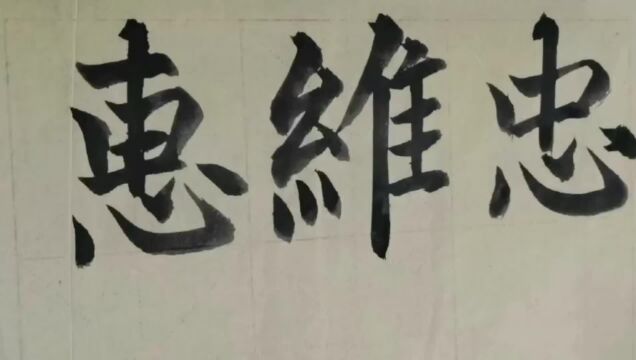 惠維忠